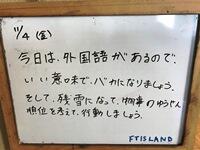 11/4 (金)
今日は、外国語があるので、
いい意味で、バカになりましょう。
そして、残雪になって、物事のゆうせん
順位を考えて、行動しましょう。
FTISLAND